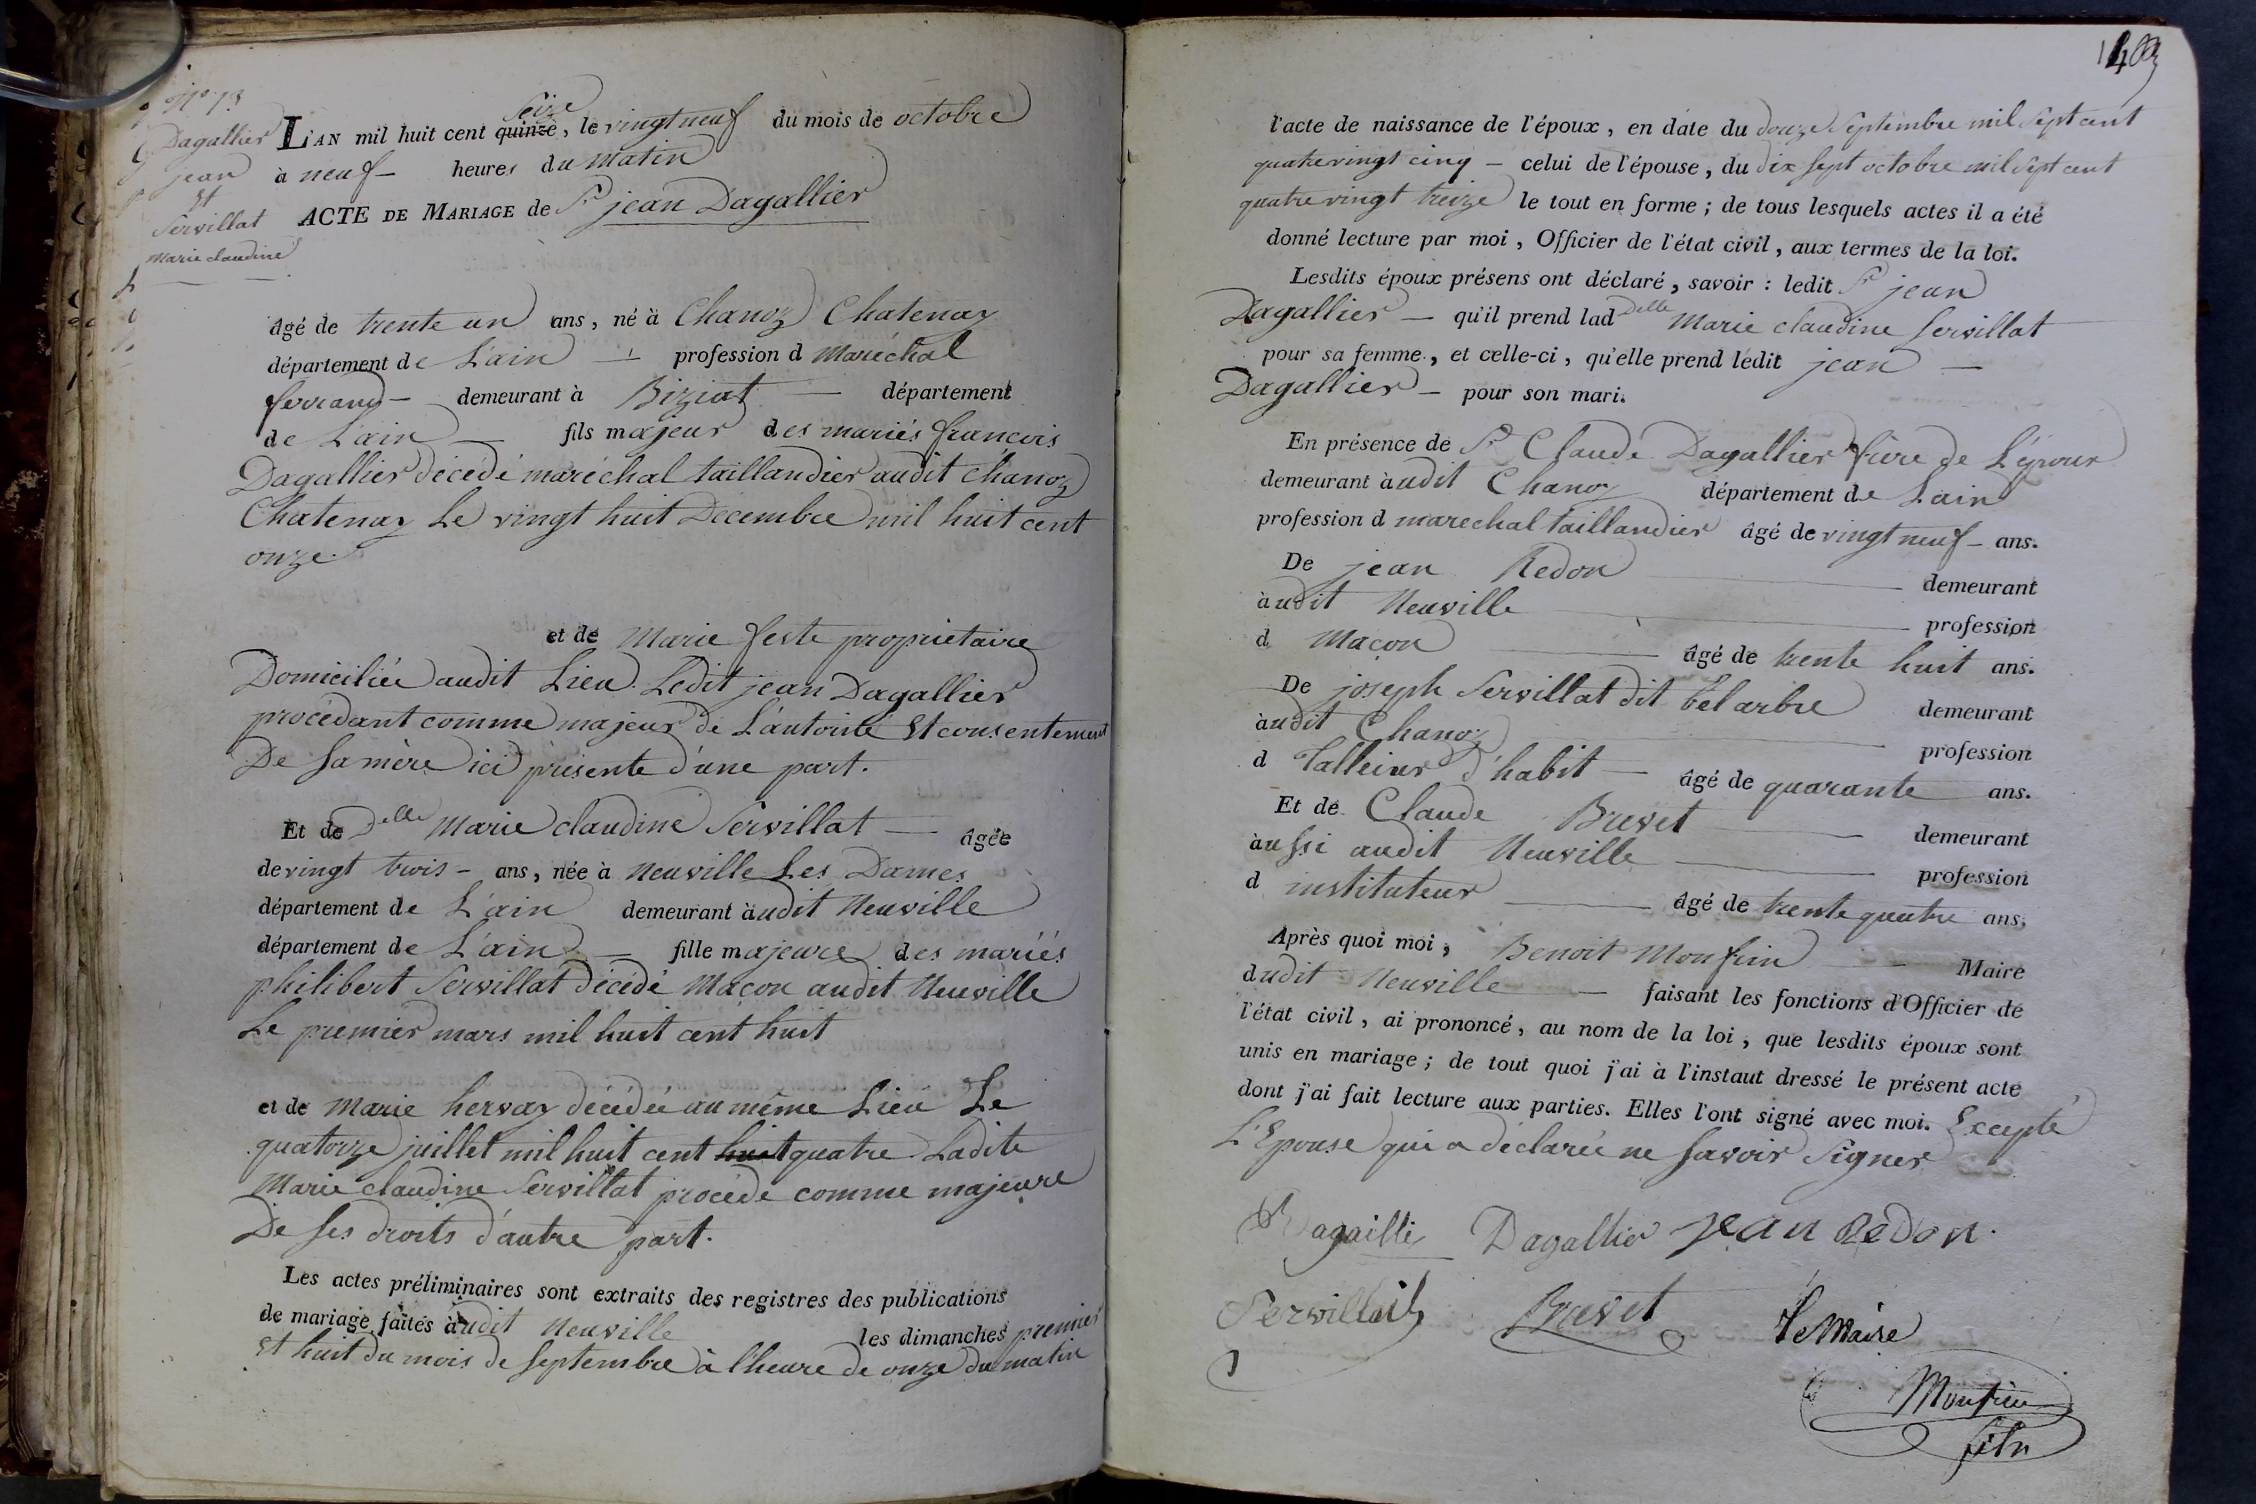 N° 13
Dagallier
jean
Et
Servillat
Marie claudine
L'AN mil huit cent quinze Seize, le vingt neuf du mois de octobre
à neuf – heures du matin
ACTE DE MARIAGE de Sr jean Dagallier
âgé de trente un ans, né à Chanoz Chatenay
département de L'ain – profession d Maréchal
ferrand – demeurant à Biziat – département
de L'ain – fils majeur des mariés françois
Dagallier décédé maréchal taillandier audit Chanoz
Chatenay Le vingt huit Decembre mil huit cent
onze.
et de Marie feste proprietaire
Domiciliée audit Lieu. Ledit jean Dagallier
procédant comme majeur de L'autorité Et consentement
De sa mère ici présente d'une part.
Et de Delle Marie claudine Servillat – âgée
de vingt trois – ans, née à Neuville Les Dames
département de L'ain demeurant audit Neuville
département de L'ain – fille majeure des mariés
philibert Servillat décédé Maçon audit Neuville
Le premier mars mil huit cent huit
et de Marie hervay décédée au même Lieu Le
quatorze juillet mil huit cent huit quatre Ladite
Marie claudine Servillat procède comme majeure
De ses droits d'autre part.
Les actes préliminaires sont extraits des registres des publications
de mariage faites audit Neuville les dimanches premier
Et huit du mois de septembre à l'heure de onze du matin
l'acte de naissance de l'époux, en date du douze Septembre mil sept cent
quatre vingt cinq – celui de l'épouse, du dix sept octobre mil sept cent
quatre vingt treize le tout en forme; de tous lesquels actes il a été
donné lecture par moi, Officier de l'état civil, aux termes de la loi.
Lesdits époux présens ont déclaré, savoir: ledit Sr jean
Dagallier – qu'il prend lad Delle Marie claudine Servillat
pour sa femme, et celle-ci, qu'elle prend ledit jean –
Dagallier – pour son mari.
En présence de Sr Claude Dagallier frère de L'époux
demeurant audit Chanoz département de L'ain
profession d marechal taillandier âgé de vingt neuf – ans.
De jean Redon demeurant
audit Neuville profession
d Maçon âgé de trente huit ans.
De joseph Servillat dit bel arbre demeurant
audit Chanoz profession
d Tallieur d'habit – âgé de quarante ans.
Et de Claude Brevet demeurant
aussi audit Neuville profession
d instituteur âgé de trente quatre ans.
Après quoi moi, Benoit Monfrin Maire
dudit Neuville – faisant les fonctions d'Officier de
l'état civil, ai prononcé, au nom de la loi, que lesdits époux sont
unis en mariage; de tout quoi j'ai à l'instaut dressé le présent acte
dont j'ai fait lecture aux parties. Elles l'ont signé avec moi. Excepté
L'Epouse qui a déclarée ne savoir Signer
Dagaillie Dagallier jean Redon.
Servillat Brevet Le Maire
Monfrin
fils